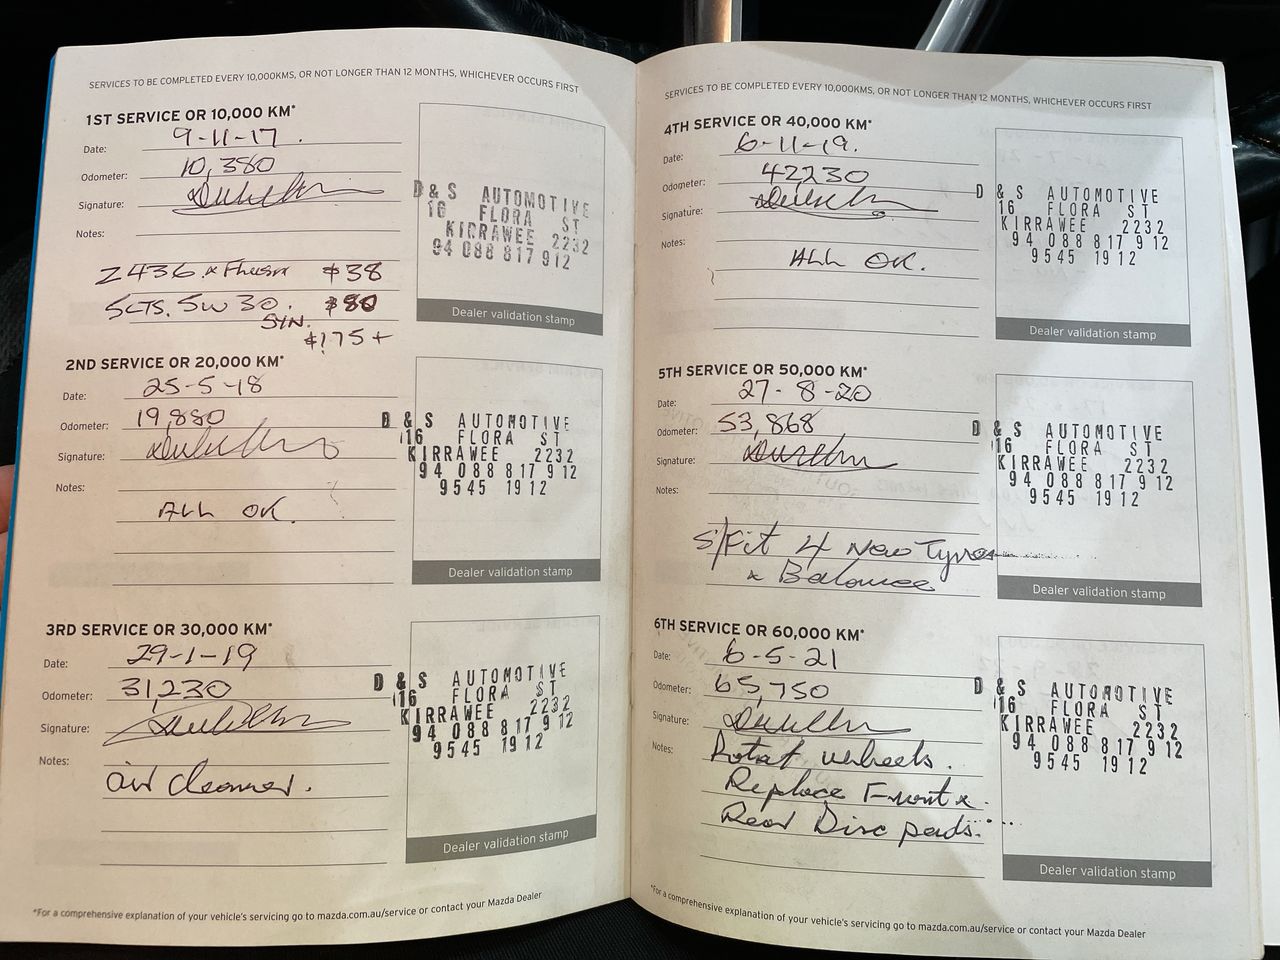 SERVICES TO BE COMPLETED EVERY 10,000KMS, OR NOT LONGER THAN 12 MONTHS, WHICHEVER OCCURS FIRST
1ST SERVICE OR 10,000 KM*
Date: 9-11-17.
Odometer: 10,380
Signature:
Notes:
Z436 x Flush $38
5LTS. 5W30. $80
SYN.
$175+
D & S AUTOMOTIVE
16 FLORA ST
KIRRAWEE 2232
94 088 817 912
Dealer validation stamp
2ND SERVICE OR 20,000 KM*
Date: 25-5-18
Odometer: 19,880
Signature:
Notes:
ALL OK.
D & S AUTOMOTIVE
16 FLORA ST
KIRRAWEE 2232
94 088 817 912
9545 1912
Dealer validation stamp
3RD SERVICE OR 30,000 KM*
Date: 29-1-19
Odometer: 31,230
Signature:
Notes:
air cleaner.
D & S AUTOMOTIVE
16 FLORA ST
KIRRAWEE 2232
94 088 817 912
9545 1912
Dealer validation stamp
*For a comprehensive explanation of your vehicle's servicing go to mazda.com.au/service or contact your Mazda Dealer
SERVICES TO BE COMPLETED EVERY 10,000KMS, OR NOT LONGER THAN 12 MONTHS, WHICHEVER OCCURS FIRST
4TH SERVICE OR 40,000 KM*
Date: 6-11-19.
Odometer: 42230
Signature:
Notes:
ALL OK.
D & S AUTOMOTIVE
16 FLORA ST
KIRRAWEE 2232
94 088 817 912
9545 1912
Dealer validation stamp
5TH SERVICE OR 50,000 KM*
Date: 27-8-20
Odometer: 53,868
Signature:
Notes:
S/Fit 4 New Tyres
x Balance
D & S AUTOMOTIVE
16 FLORA ST
KIRRAWEE 2232
94 088 817 912
9545 1912
Dealer validation stamp
6TH SERVICE OR 60,000 KM*
Date: 6-5-21
Odometer: 65,750
Signature:
Notes: Rotat wheels.
Replace Front x
Rear Disc pads.
D & S AUTOMOTIVE
16 FLORA ST
KIRRAWEE 2232
94 088 817 912
9545 1912
Dealer validation stamp
*For a comprehensive explanation of your vehicle's servicing go to mazda.com.au/service or contact your Mazda Dealer